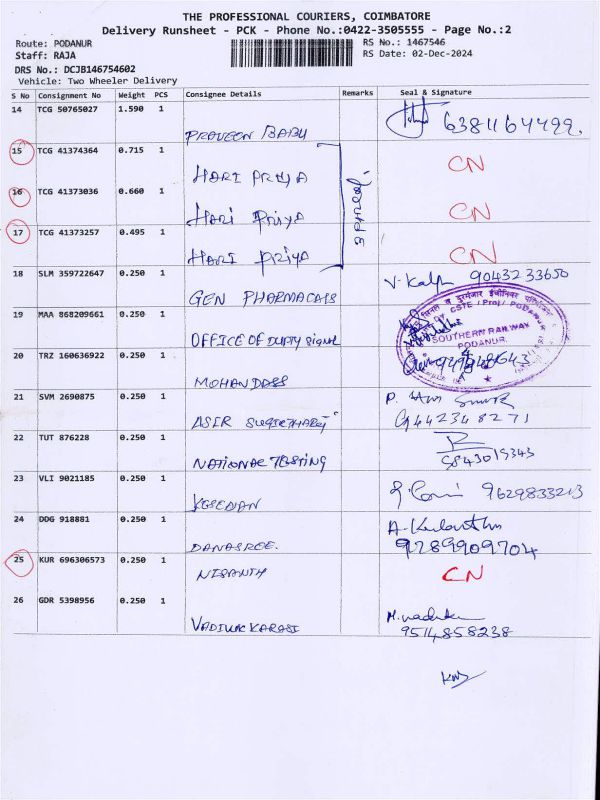 THE PROFESSIONAL COURIERS, COIMBATORE
Delivery Runsheet - PCK - Phone No.:0422-3505555 - Page No.:2
Route: PODANUR
RS No.: 1467546
Staff: RAJA
RS Date: 02-Dec-2024
DRS No.: DCJB146754602
Vehicle: Two Wheeler Delivery
S No Consignment No Weight PCS Consignee Details Remarks Seal & Signature
14 TCG 50765027 1.590 1
PRAVEEN BABU 6381164499.
15 TCG 41374364 0.715 1 CN
HARI PRIYA
16 TCG 41373036 0.660 1 CN
HARI PRIYA
17 TCG 41373257 0.495 1 CN
HARI PRIYA
3 parcel
18 SLM 359722647 0.250 1 9043233650
GEN PHARMACAIS
19 MAA 868209661 0.250 1
OFFICE OF DUPTY signal
SOUTHERN RAILWAY
PODANUR.
20 TRZ 160636922 0.250 1
MOHANDASS
21 SVM 2690875 0.250 1
ASIR 9442348271
22 TUT 876228 0.250 1
NATIONAL TESTING 9843019343
23 VLI 9021185 0.250 1
9629833213
24 DDG 918881 0.250 1
DANASREE. 9289909704
25 KUR 696306573 0.250 1 CN
NISANTH
26 GDR 5398956 0.250 1
VADIVUKKARASI 9514858238